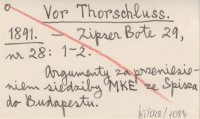 o Vor Thorschluss.
1891. — Zipser Bote 29,
nr 28: 1-2.
Argumenty za przeniesie-
niem siedziby MKE ze Spisza
do Budapesztu.